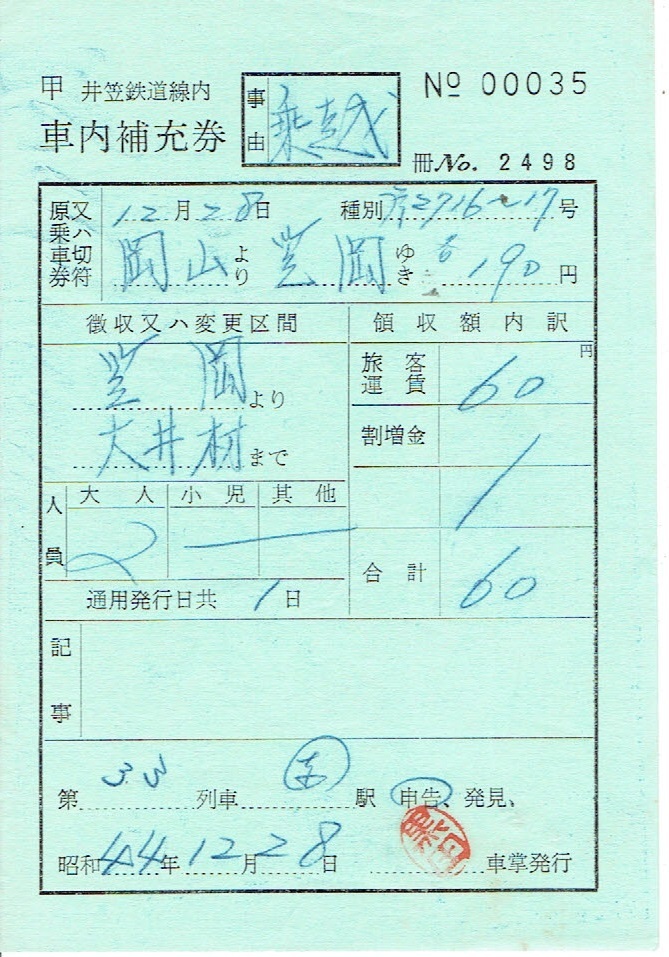 甲 井笠鉄道線内
車内補充券
事由 乗越
№ 00035
冊No. 2498
原乗車券 又ハ切符 12月28日 種別 2716〜17号
岡山より 笠岡ゆき 190円
徴収又ハ変更区間
笠岡より
大井村まで
領収額内訳
円
旅客運賃 60
割増金
合計 60
人員 大人 小児 其他
2
通用発行日共 1日
記事
第33列車 駅 申告、発見、
昭和44年12月28日 車掌発行